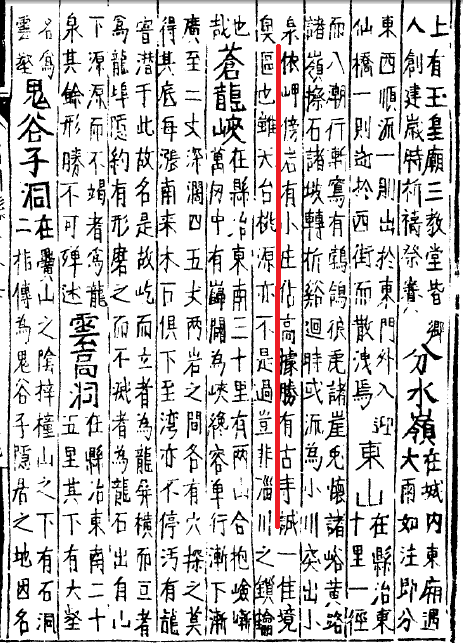 上有玉皇廟三教堂皆鄉人創建歲時祈禱祭賽 分水嶺在城内東廟遇大雨如注即分
東西順流一則出於東門外入迎仙橋一則逆於西街而散洩焉 東山在縣治東十里一經
而入潮行漸寫有鵓鴿狼虎諸崖兎懷諸峪黄路
諸嶺擦石諸坡轉折谿迴時或派為小川突出小
泉依岬傍岩有小庄佔高據勝有古寺誠一佳境
奥區也雖天台桃源亦不是過豈非淄川之鎖鑰
也哉 蒼龍峽在縣治東南三十里有兩山合抱嶮巇萬内中有闢為峽纔容單行漸下漸
廣至二丈深濶四五丈兩岩之間各有穴探之莫
得其底每漲南来木石俱下至湾亦不停汚有龍
窨潜于此故名是故屹而立者為龍屏横而亘者
為龍埠隠約有形磨之而不泯者為龍石出自山
下源源而不竭者為龍泉其餘形勝不可殫述 雲高洞在縣冶東南二十五里其下有大壑
名為雲壑 鬼谷子洞二在黌山之陰梓橦山之下有石洞指傳為鬼谷子隠居之地因名